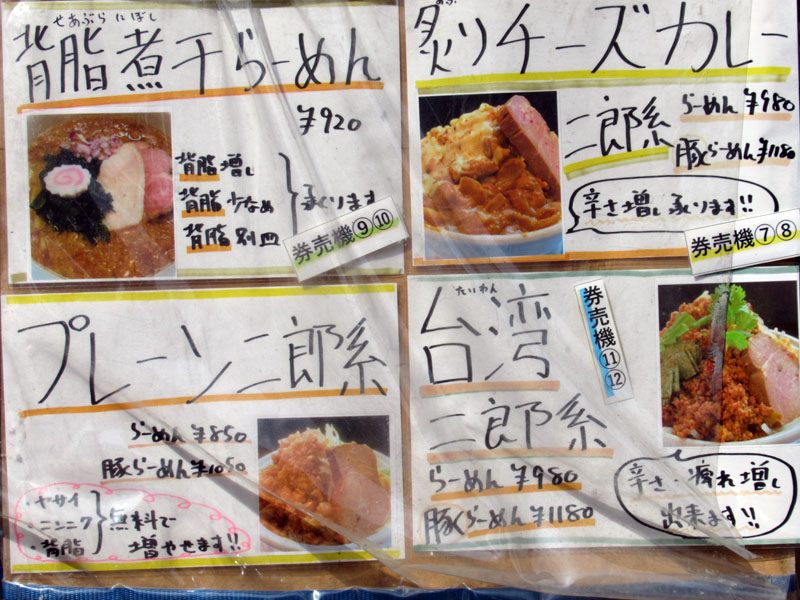 せあぶら にぼし
背脂煮干らーめん
¥920
背脂増し
背脂少なめ
背脂別皿
承ります
券売機⑨⑩
あぶ
炙りチーズカレー
二郎系
らーめん ¥980
豚らーめん ¥1180
辛さ増し承ります!!
券売機⑦⑧
プレーン二郎系
らーめん ¥850
豚らーめん ¥1050
・ヤサイ
・ニンニク
・背脂
無料で
増やせます!!
たいわん
台湾
二郎系
らーめん ¥980
豚らーめん ¥1180
券売機⑪⑫
辛さ・痺れ増し
出来ます!!